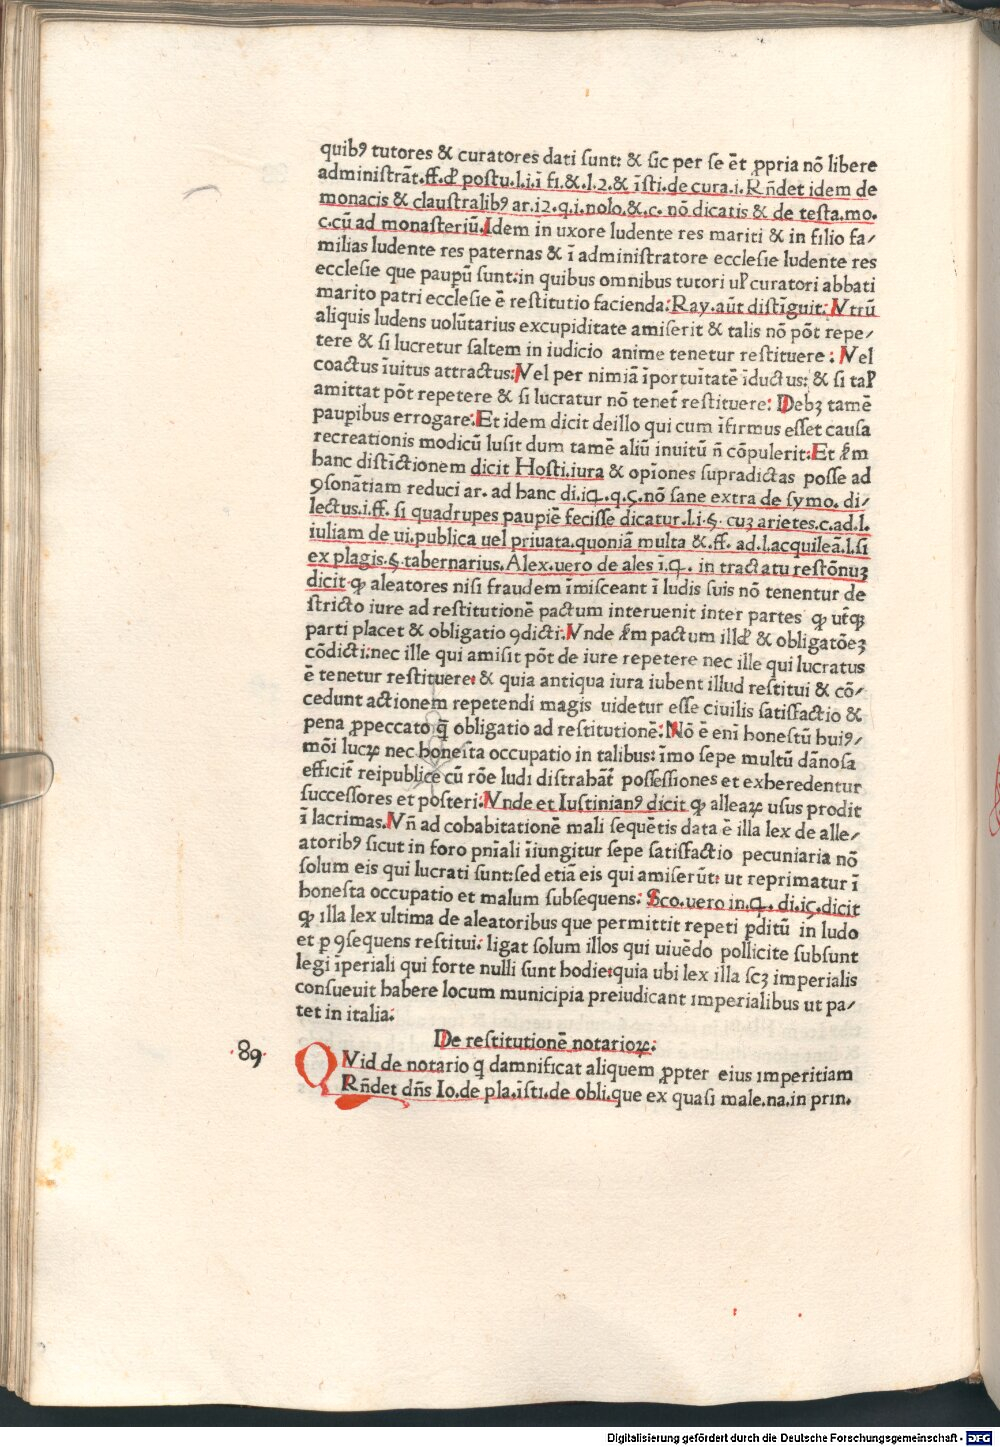 quibꝰ tutores & curatores dati ſunt: & ſic per ſe ēt ꝓpria nō libere
adminiſtrāt.ff.đ poſtu.l.i.ī fi.&.l.2.& īſti.de cura.i.Rn̄det idem de
monacis & clauſtralibꝰ ar.12.q.i.nolo.&.c. nō dicatis & de teſta.mo.
c.cū ad monaſteriū.Idem in uxore ludente res mariti & in filio fa/
milias ludente res paternas & ī adminiſtratore eccleſie ludente res
eccleſie que paupū ſunt:in quibus omnibus tutori ul̓ curatori abbati
marito patri eccleſie ē reſtitutio facienda:Ray.aūt diſtīguit:Vtrū
aliquis ludens uolūtarius excupiditate amiſerit & talis nō pōt repe/
tere & ſi lucretur ſaltem in iudicio anime tenetur reſtituere: Vel
coactus īuitus attractus:Vel per nimiā īportuītatē īductus: & ſi tal̓
amittat pōt repetere & ſi lucratur nō tenet̄ reſtituere: Debꝫ tamē
paupibus errogare:Et idem dicit deillo qui cum īfirmus eſſet cauſa
recreationis modicū luſit dum tamē aliū inuitū n̄ cōpulerit:Et ẜm
hanc diſtīctionem dicit Hoſti.iura & opīones ſupradictas poſſe ad
ꝯſonātiam reduci ar. ad hanc di.i4.q.5.nō ſane extra de ſymo. di/
lectus.i.ff. ſi quadrupes paupiē feciſſe dicatur.l.i.§. cuꝫ arietes.c.ad.l.
iuliam de ui.publica uel priuata.quoniā multa &.ff. ad.l.acquileā.l.ſi
ex plagis.§.tabernarius.Alex.uero de ales ī.4. in tractatu reſtōnuꝫ
dicit ꝙ aleatores niſi fraudem īmiſceant ī ludis ſuis nō tenentur de
ſtricto iure ad reſtitutionē pactum interuenit inter partes ꝙ ut̄qꝫ
parti placet & obligatio ꝯdicti:Vnde ẜm pactum illđ & obligatōeꝫ
cōdicti:nec ille qui amiſit pōt de iure repetere nec ille qui lucratus
ē tenetur reſtituere: & quia antiqua iura iubent illud reſtitui & cō/
cedunt actionem repetendi magis uidetur eſſe ciuilis ſatiſfactio &
pena ꝓpeccato q̄ obligatio ad reſtitutionē:Nō ē enī honeſtū huiꝰ/
mōi lucꝝ nec honeſta occupatio in talibus: īmo ſepe multū dānoſa
efficit̄ reipublice cū rōe ludi diſtrahāt̄ poſſeſſiones et exheredentur
ſucceſſores et poſteri:Vnde et Iuſtinianꝰ dicit ꝙ alleaꝝ uſus prodit
ī lacrimas.Vn̄ ad cohabitationē mali ſequētis data ē illa lex de alle/
atoribꝰ ſicut in foro pn̄iali īiungitur ſepe ſatiſfactio pecuniaria nō
ſolum eis qui lucrati ſunt:ſed etiā eis qui amiſerūt: ut reprimatur ī
honeſta occupatio et malum ſubſequens: Sco.uero in.4. di.i5.dicit
ꝙ illa lex ultima de aleatoribus que permittit repeti ꝑditū in ludo
et ꝑ ꝯſequens reſtitui: ligat ſolum illos qui uiuēdo pollicite ſubſunt
legi īperiali qui forte nulli ſunt hodie:quia ubi lex illa ſcꝫ imperialis
conſueuit habere locum municipia preiudicant imperialibus ut pa/
tet in italia:
De reſtitutionē notarioꝝ:
·89·
QVid de notario q̄ damnificat aliquem ꝓpter eius imperitiam
Rn̄det dn̄s Io.de pla.īſti.de obli.que ex quaſi male.na.in prin.
Digitalisierung gefördert durch die Deutsche Forschungsgemeinschaft - DFG